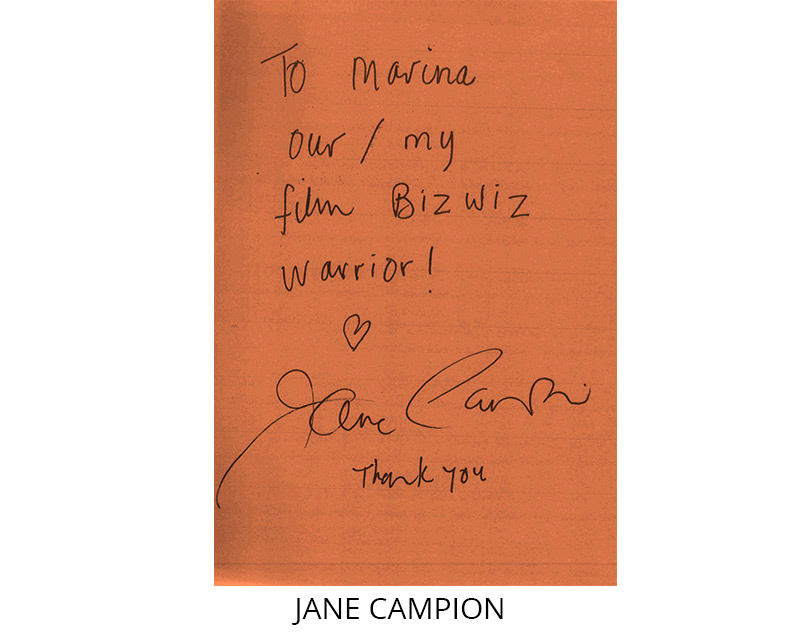 To Marina
our / my
film Bizwiz
warrior!
Jane Campion
Thank you
JANE CAMPION